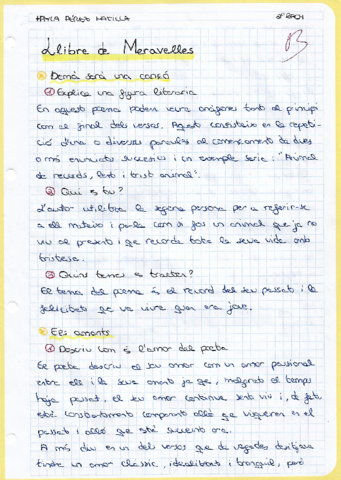 2º BACH
B
Llibre de Meravelles
Demà serà una cançó
① Explica una figura literaria
En aquest poema podem veure anàfores tant al principi
com al final dels versos. Aquest consisteix en la repeti-
ció d'una o diverses paraules al començament de dues
o més enunciats successius i un exemple seria: "Animal
de records, lent i trist animal".
② Qui es tu?
L'autor utilitza la segona persona per a referir-se
a ell mateix i parla com si fos un animal que ja no
viu al present i que recorda tota la seua vida amb
tristesa.
③ Quins temes es tracten?
El tema del poema és el record del seu passat i la
felicitat que va viure quan era jove.
Els amants
① Descriu com és l'amor del poeta
El poeta descriu el seu amor com un amor passional
entre ell i la seua amant ja que, malgrat el temps
haja passat, el seu amor continua sent viu i, de fet,
està constantment comparant allò que visqueren en el
passat i allò que està succeint ara.
A més diu en un dels versos que de vegades desitjava
tindre un amor clàssic, idealitzat i tranquil, però